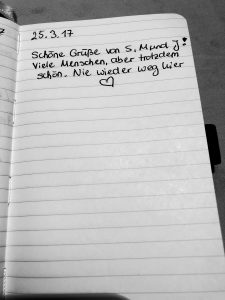 25.3.17
Schöne Grüße von S, M und J!
Viele Menschen, aber trotzdem
schön. Nie wieder weg hier
♡